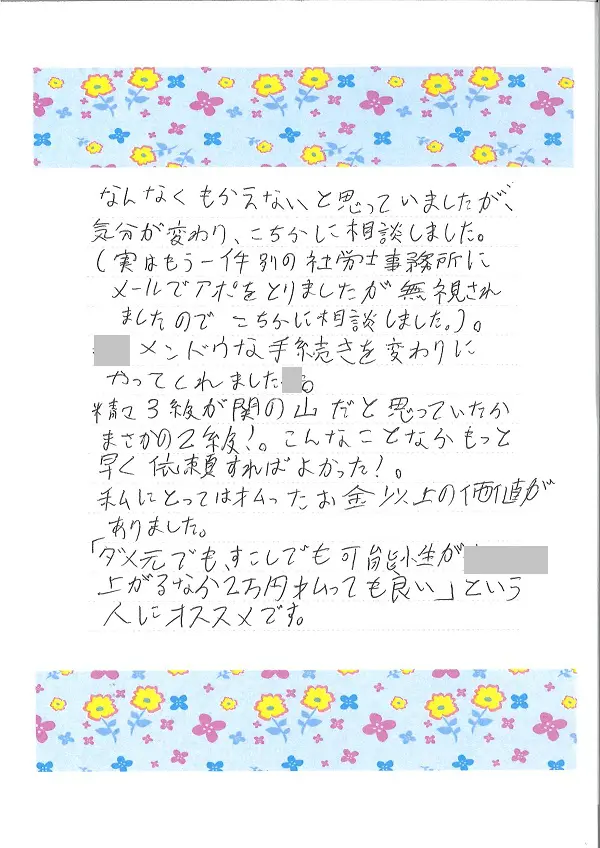 なんなくもかえない、と思っていましたが、
気分が変わり、こちらに相談しました。
(実はもう一件別の社労士事務所に
メールでアポをとりましたが無視され
ましたのでこちらに相談しました。)。
メンドウな手続きを変わりに
やってくれました。
精々3級が関の山だと思っていたから
まさかの2級!。こんなことならもっと
早く依頼すればよかった!。
私にとっては払ったお金以上の価値が
ありました。
「ダメ元でも、すこしでも可能性が
上がるなら2万円払っても良い」という
人にオススメです。